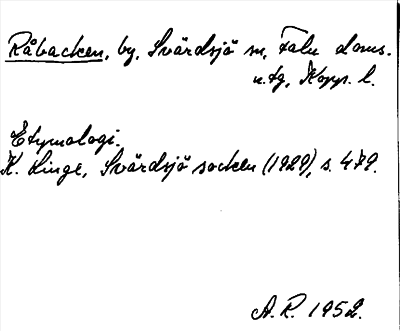 Råbacken, by, Svärdsjö sn, Falu doms.
n. tg, Kopp. l.
Etymologi.
K. Linge, Svärdsjö socken (1929), s. 479.
A. R. 1952.